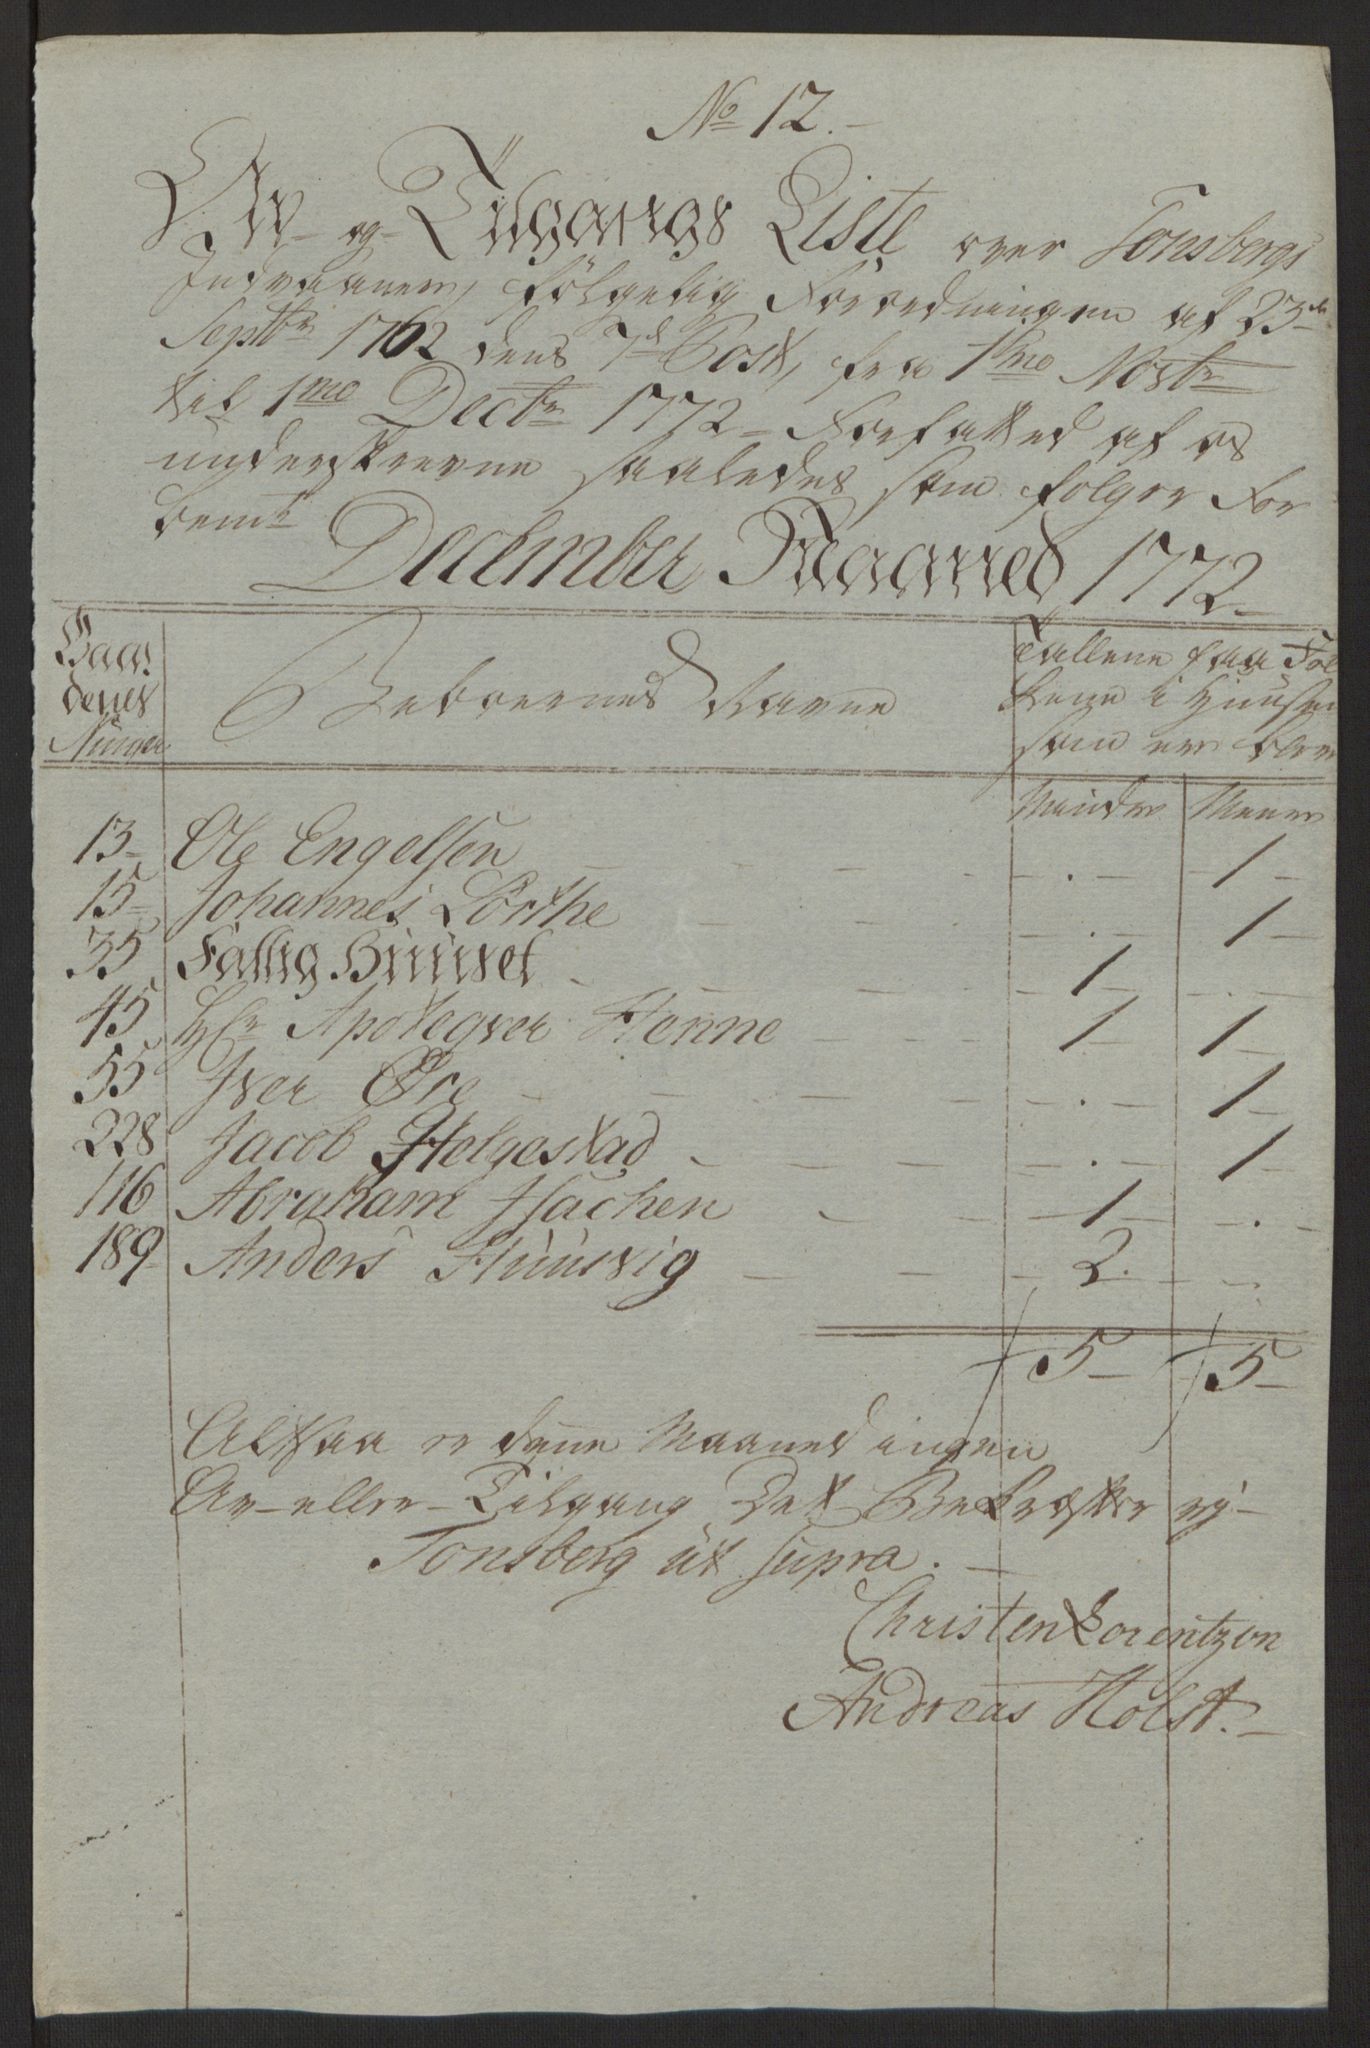 No 12.
Av- og Tilgangs Liste over Tonsbergs
Indvaanere, følgelig Forordningen af 23de
Septbr 1762 dens 7de Post, fra 1mo Novbr
til 1mo Decbr 1772 - Forfatted af os
underskrevne saaledes som følger for
bemte
December Maaned 1772
Gaar
denes
Numer
Beboernes Navne
Tallene paa Fol
kene i Huuset
som ere bleven
Mindre Meere
13 Ole Engelsen . 1
15 Johannes Lorthe . 1
35 Fattig Huuset 1 .
45 Hr Apoteqver Henne 1 1
55 Iver Øre . 1
228 Jacob Helgestad . 1
116 Abraham Isachen 1 .
189 Anders Huusvig 2 .
5 5
Altsaa er denne Maaned ingen
Av- eller Tilgang Det Bekræfter vj
Tonsberg ut supra.
Christen Lorentzon
Andreas Holst.